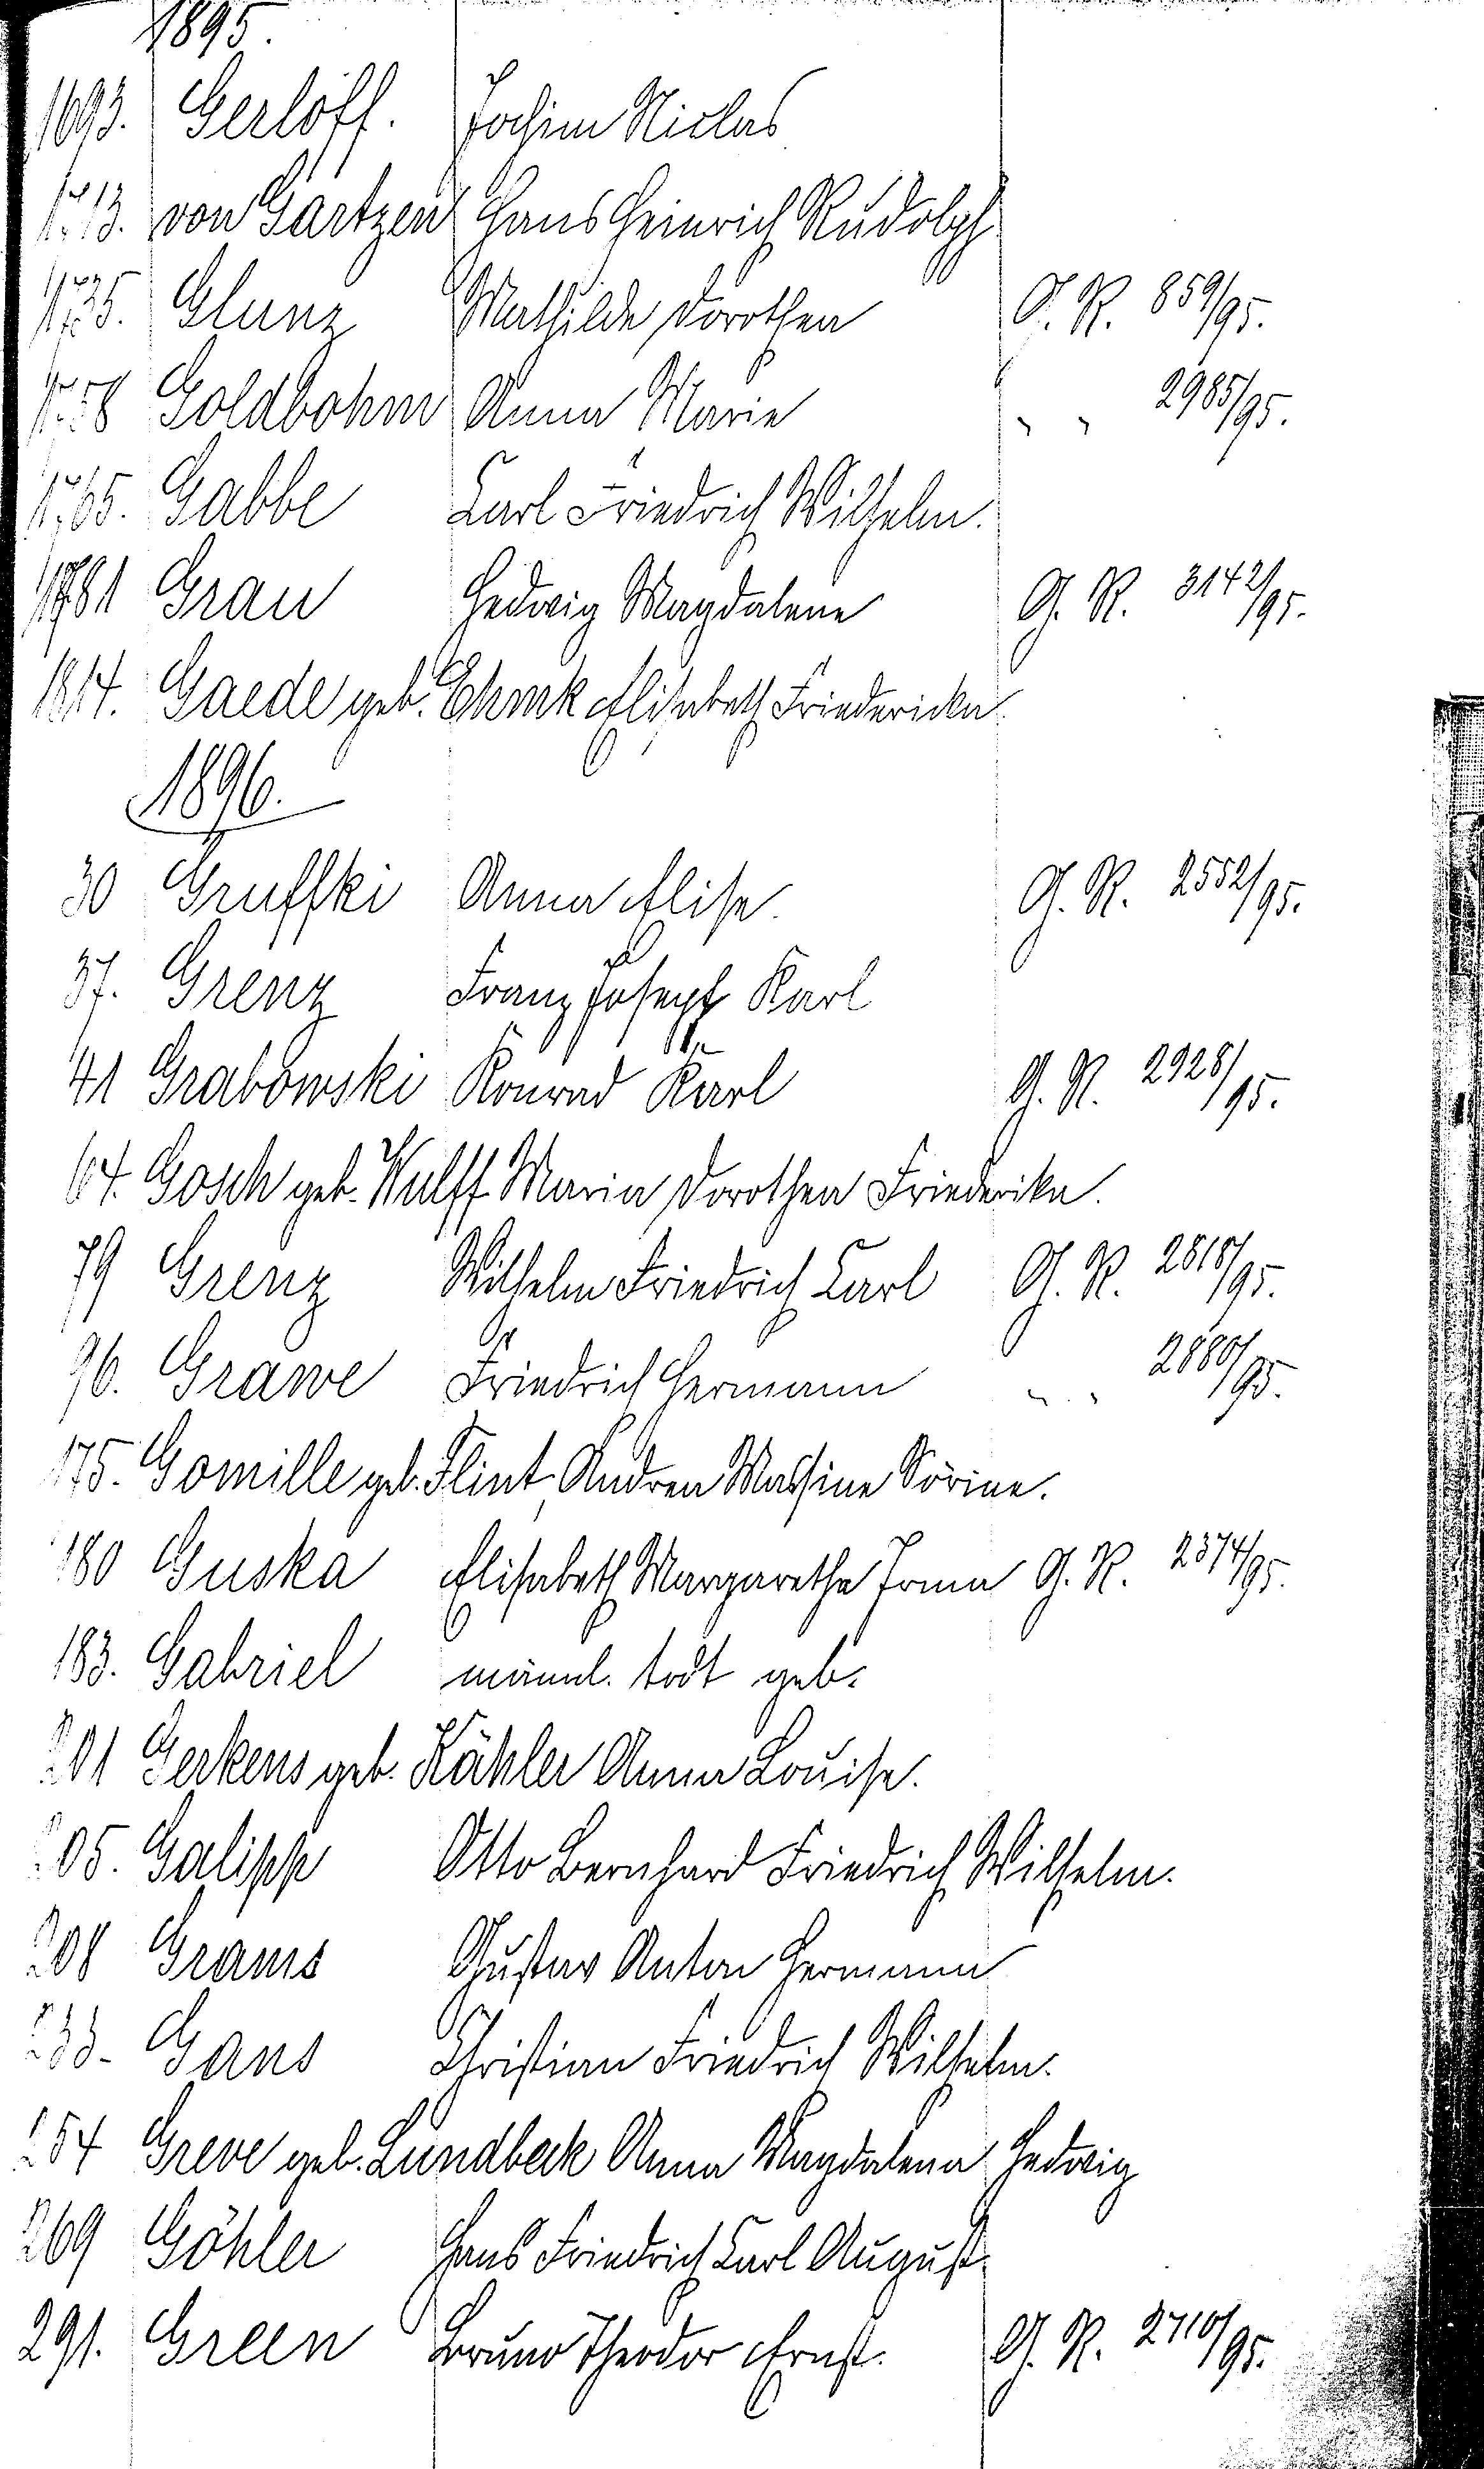 1895.
1693. Gerloff. Jochim Niclas
1713. von Gartzen Hans Heinrich Rudolph
1735. Glunz Mathilde Dorothea G. R. 859/95.
1758 Goldbohm Anna Marie " " 2985/95.
1765. Gabbe Carl Friedrich Wilhelm.
1781 Grau Hedwig Magdalene G. R. 3142/95.
1814. Gaede geb. Ehmk Elisabeth Friedericka.
1896.
30 Gruffki Anna Elise. G. R. 2552/95.
37. Grenz Franz Joseph Karl
41 Grabowski Konrad Karl G. R. 2928/95.
64. Gosch geb. Wulff Maria Dorothea Friederika.
79 Grenz Wilhelm Friedrich Carl G. R. 2818/95.
96. Grawe Friedrich Hermann " " 2880/95.
175. Gomille geb. Flint, Andrea Mathine Sörine.
180 Guska Elisabeth Margarethe Irma G. R. 2374/95.
183. Gabriel männl. todt geb.
201 Gerkens geb. Kähler Anna Louise.
205. Galipp Otto Bernhard Friedrich Wilhelm.
208 Grams Gustav Anton Hermann
Gans Christian Friedrich Wilhelm.
254 Greve geb. Lundbeck Anna Magdalena Hedwig
269 Göhler Hans Friedrich Carl August.
291. Green Bruno Theodor Ernst. G. R. 2710/95.